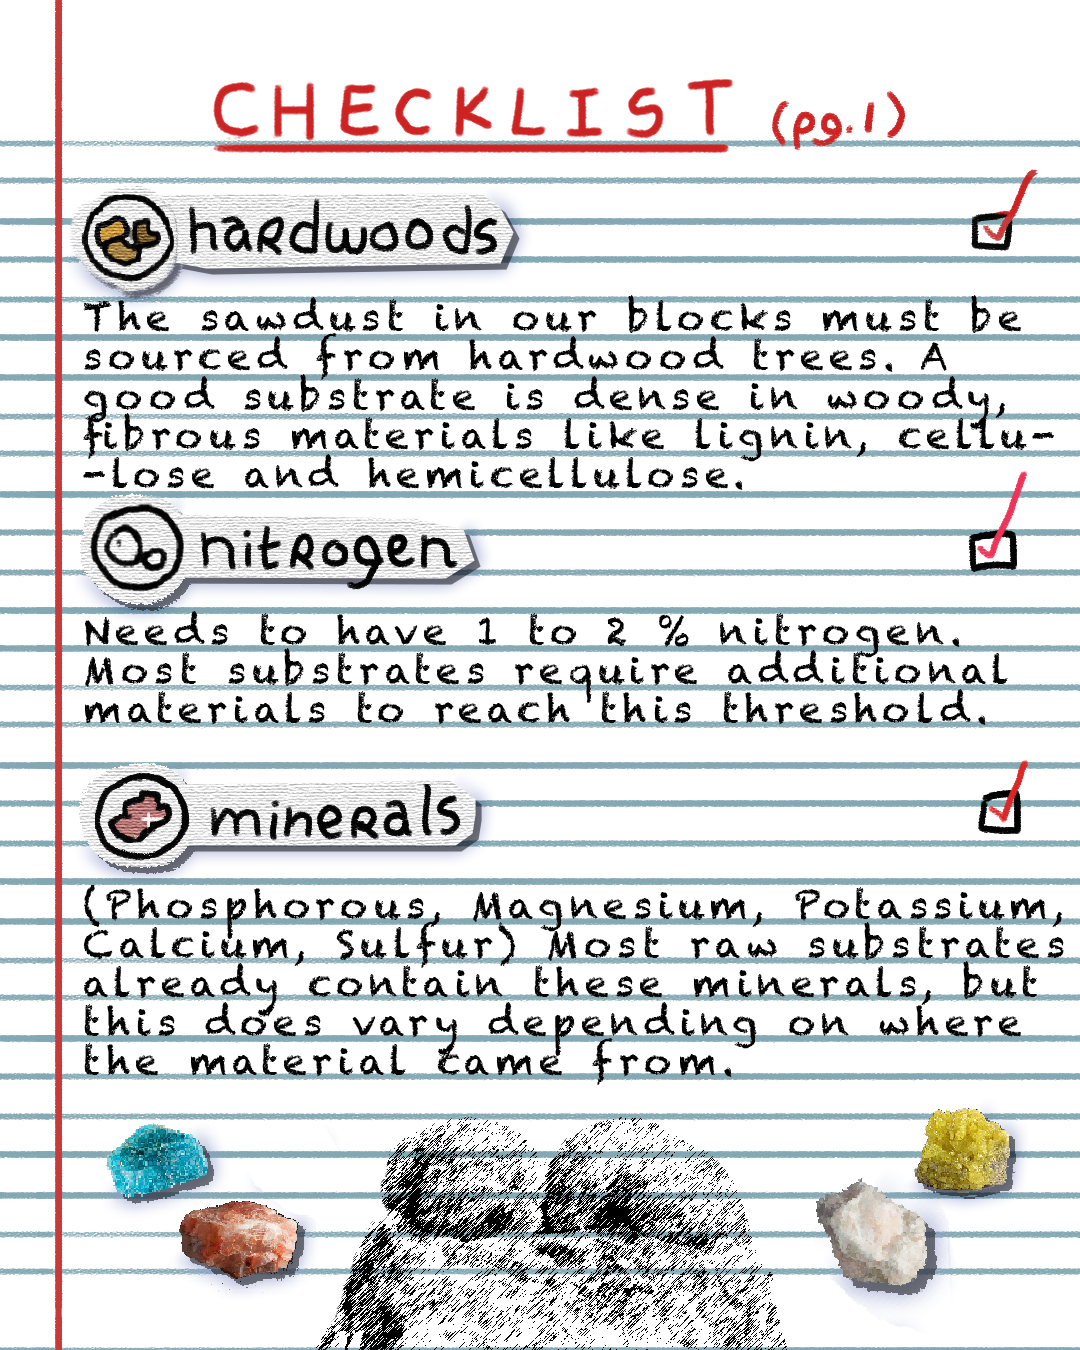 CHECKLIST (pg.1)
hardwoods
The sawdust in our blocks must be
sourced from hardwood trees. A
good substrate is dense in woody,
fibrous materials like lignin, cellu-
-lose and hemicellulose.
nitrogen
Needs to have 1 to 2 % nitrogen.
Most substrates require additional
materials to reach this threshold.
minerals
(Phosphorous, Magnesium, Potassium,
Calcium, Sulfur) Most raw substrates
already contain these minerals, but
this does vary depending on where
the material came from.